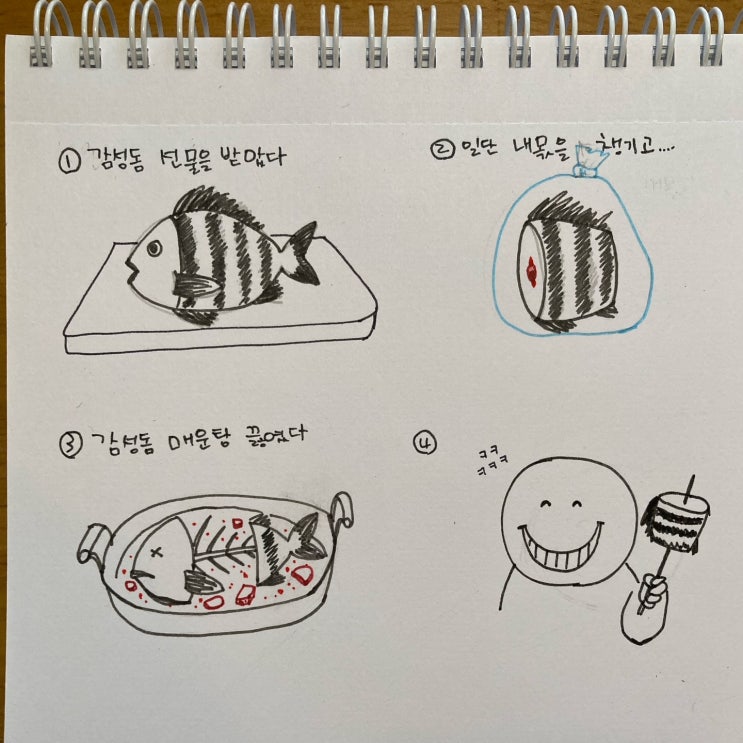 ① 감성돔 선물을 받았다
② 일단 내몫을 챙기고....
③ 감성돔 매운탕 끓였다
④
ㅋㅋ
ㅋㅋㅋ